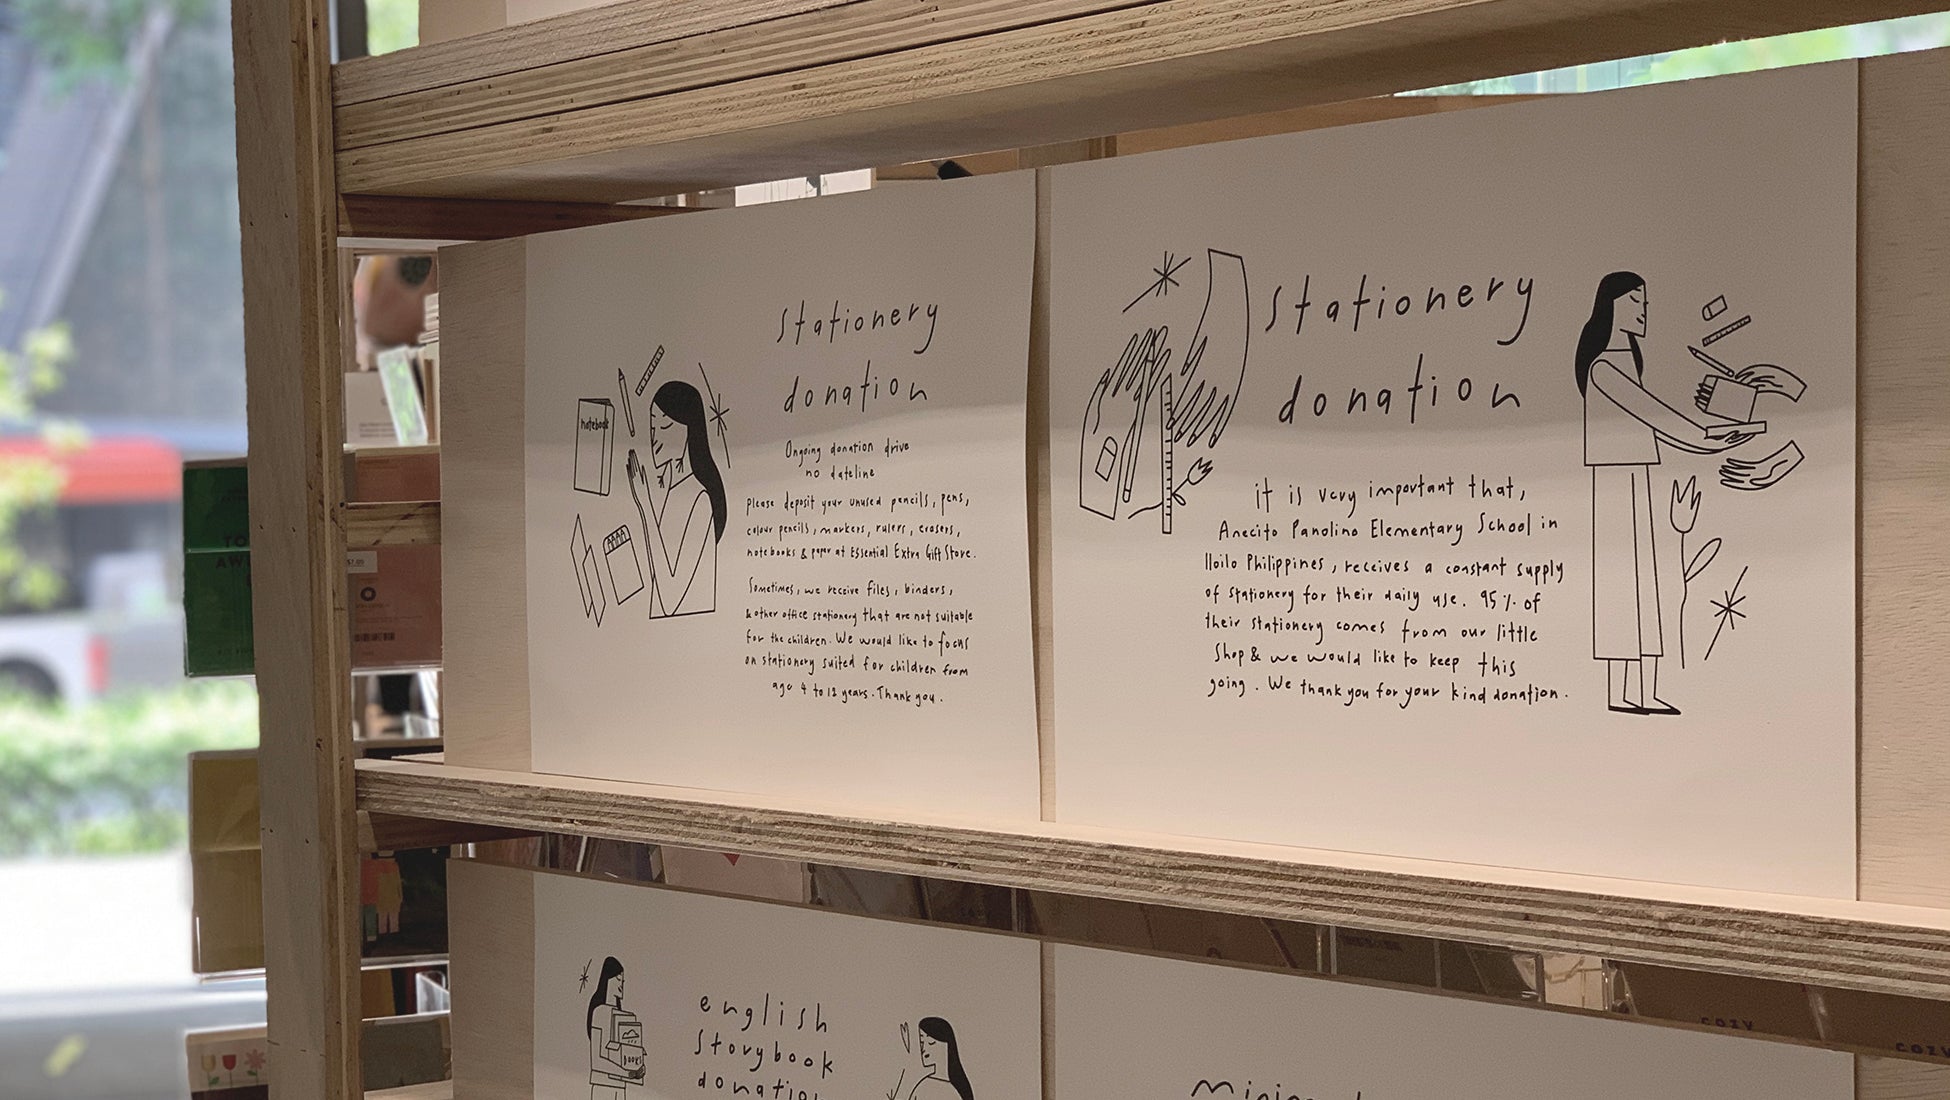 Stationery
donation
notebook
Ongoing donation drive
no dateline
Please deposit your unused pencils, pens,
colour pencils, markers, rulers, erasers,
notebooks & paper at Essential Extra Gift Store.
Sometimes, we receive files, binders,
& other office stationery that are not suitable
for the children. We would like to focus
on stationery suited for children from
age 4 to 12 years. Thank you.
Stationery
donation
it is very important that,
Anecito Panolino Elementary School in
Iloilo Philippines, receives a constant supply
of stationery for their daily use. 95% of
their stationery comes from our little
Shop & we would like to keep this
going. We thank you for your kind donation.
english
Storybook
donation
BOOKS
COZY
COZY
$7.00